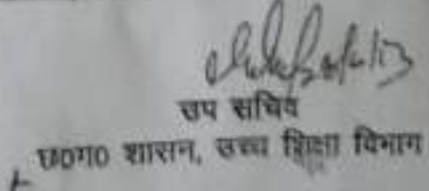 उप सचिव
छ0ग0 शासन, उच्च शिक्षा विभाग